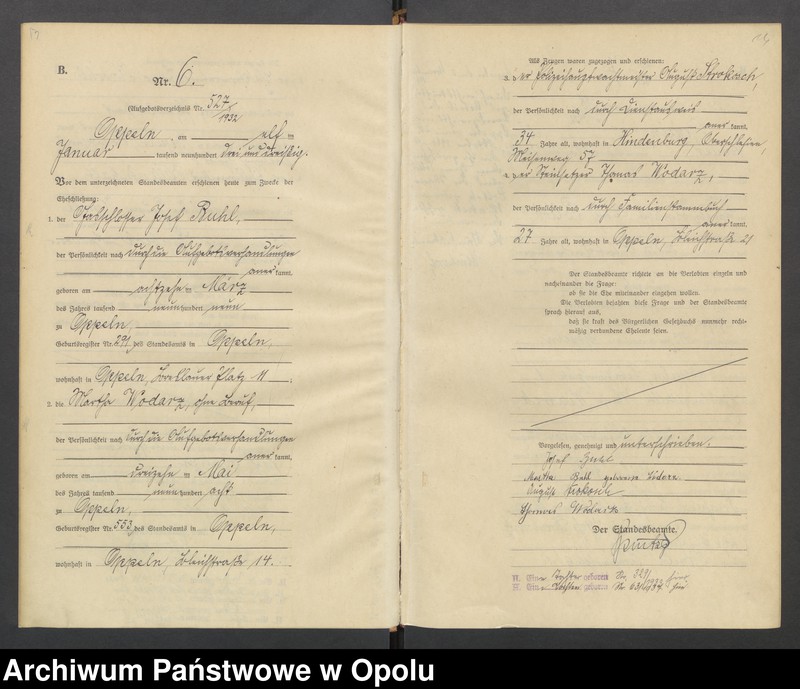 B.
Nr. 6.
(Aufgebotsverzeichnis Nr. 527/
1932
Oppeln, am elf ten
Januar tausend neunhundert drei und dreißig.
Vor dem unterzeichneten Standesbeamten erschienen heute zum Zwecke der
Eheschließung:
1. der Josef Buhl,
der Persönlichkeit nach durch die Aufgebotsverhandlungen
aner kannt,
geboren am achtzehn ten März
des Jahres tausend neunhundert neun
zu Oppeln,
Geburtsregister Nr. 291 des Standesamts in Oppeln,
wohnhaft in Oppeln, Breslauer Platz 11 ;
2. die Martha Wodarz, ohne Beruf,
der Persönlichkeit nach durch die Aufgebotsverhandlungen
aner kannt,
geboren am dreizehn ten Mai
des Jahres tausend neunhundert acht
zu Oppeln,
Geburtsregister Nr. 553 des Standesamts in Oppeln,
wohnhaft in Oppeln, 14.
Als Zeugen waren zugezogen und erschienen:
3. der Polizeihauptwachtmeister August Strokosch,
der Persönlichkeit nach durch Dienstausweis
aner kannt,
34 Jahre alt, wohnhaft in Hindenburg, Oberschlesien,
Meisenweg 57
4. der Steinsetzer Thomas Wodarz,
der Persönlichkeit nach durch Familienstammbuch
aner kannt,
27 Jahre alt, wohnhaft in Oppeln, 21
Der Standesbeamte richtete an die Verlobten einzeln und
nacheinander die Frage:
ob sie die Ehe miteinander eingehen wollen.
Die Verlobten bejahten diese Frage und der Standesbeamte
sprach hierauf aus,
daß sie kraft des Bürgerlichen Gesetzbuchs nunmehr recht-
mäßig verbundene Eheleute seien.
Vorgelesen, genehmigt und unterschrieben.
Josef Buhl
Martha Buhl geborene Wodarz
August Strokosch
Thomas Wodarz
Der Standesbeamte.
Eine Tochter geboren Nr. 323/
Eine Tochter geboren Nr.
Archiwum Państwowe w Opolu